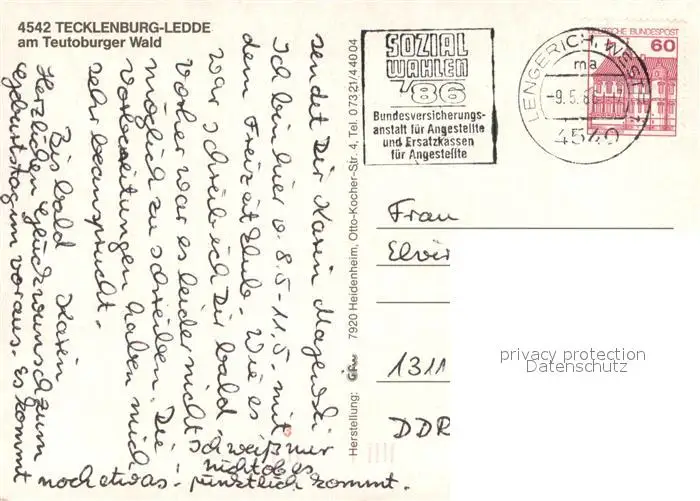 4542 TECKLENBURG-LEDDE
am Teutoburger Wald
Herzlichen Glückwunsch zum
Geburtstag im voraus. Es kommt
noch etwas. Ich weiß nur
nicht ob es
pünktlich kommt.
sendet Dir Karin Majewski
Ich bin hier v. 8.5-11.5. mit
dem Freizeitklub. Wie es
war schreib ich Dir bald.
Vorher war es leider nicht
möglich zu schreiben. Die
Vorbereitungen haben mich
sehr beansprucht.
Bis bald Karin
Herstellung:
7920 Heidenheim, Otto-Kocher-Str. 4, Tel. 07321/44004
SOZIAL
WAHLEN
'86
Bundesversicherungs-
anstalt für Angestellte
und Ersatzkassen
für Angestellte
LENGERICH, WESTF
ma
-9.5.86
4540
DEUTSCHE BUNDESPOST
60
Frau
Elvir
1311
DDR
privacy protection
Datenschutz